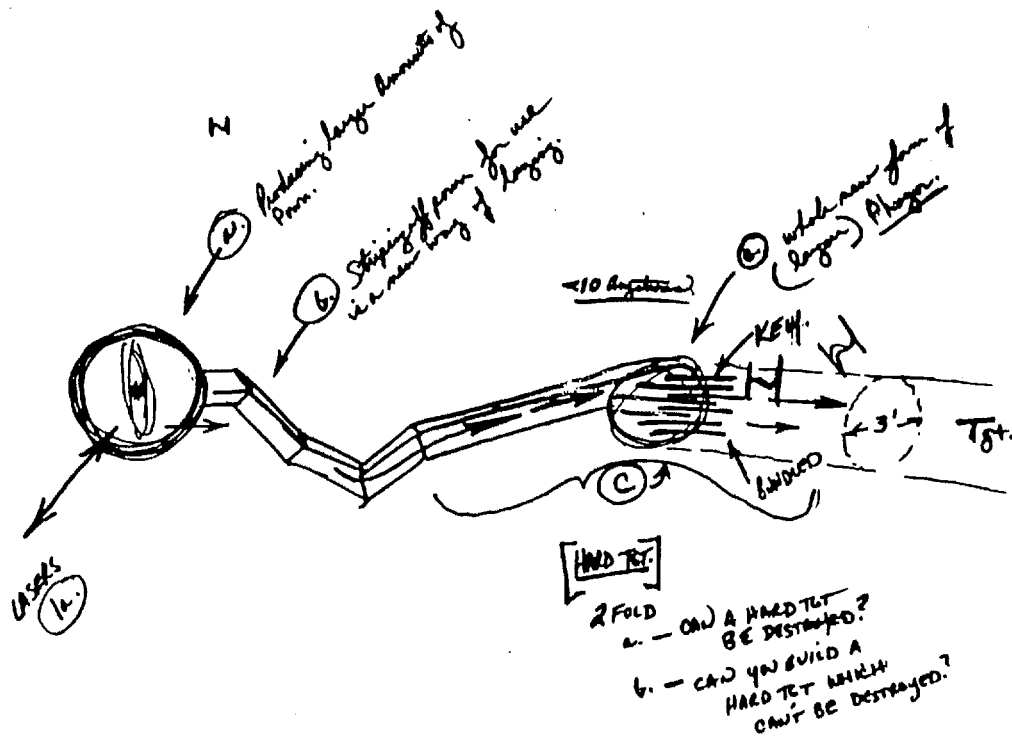 N
a. Producing larger Amounts of
Power.
b. Striping off power for use
is a new way of lazing.
<10 Angstroms?
whole new form of
(lazer) Phazor.
KEW.
3'
Tgt.
BUNDLED
C
LASERS
1a.
[HARD TGT.]
2 FOLD
a. — CAN A HARD TGT
BE DESTROYED?
b. — CAN YOU BUILD A
HARD TGT WHICH
CAN'T BE DESTROYED?